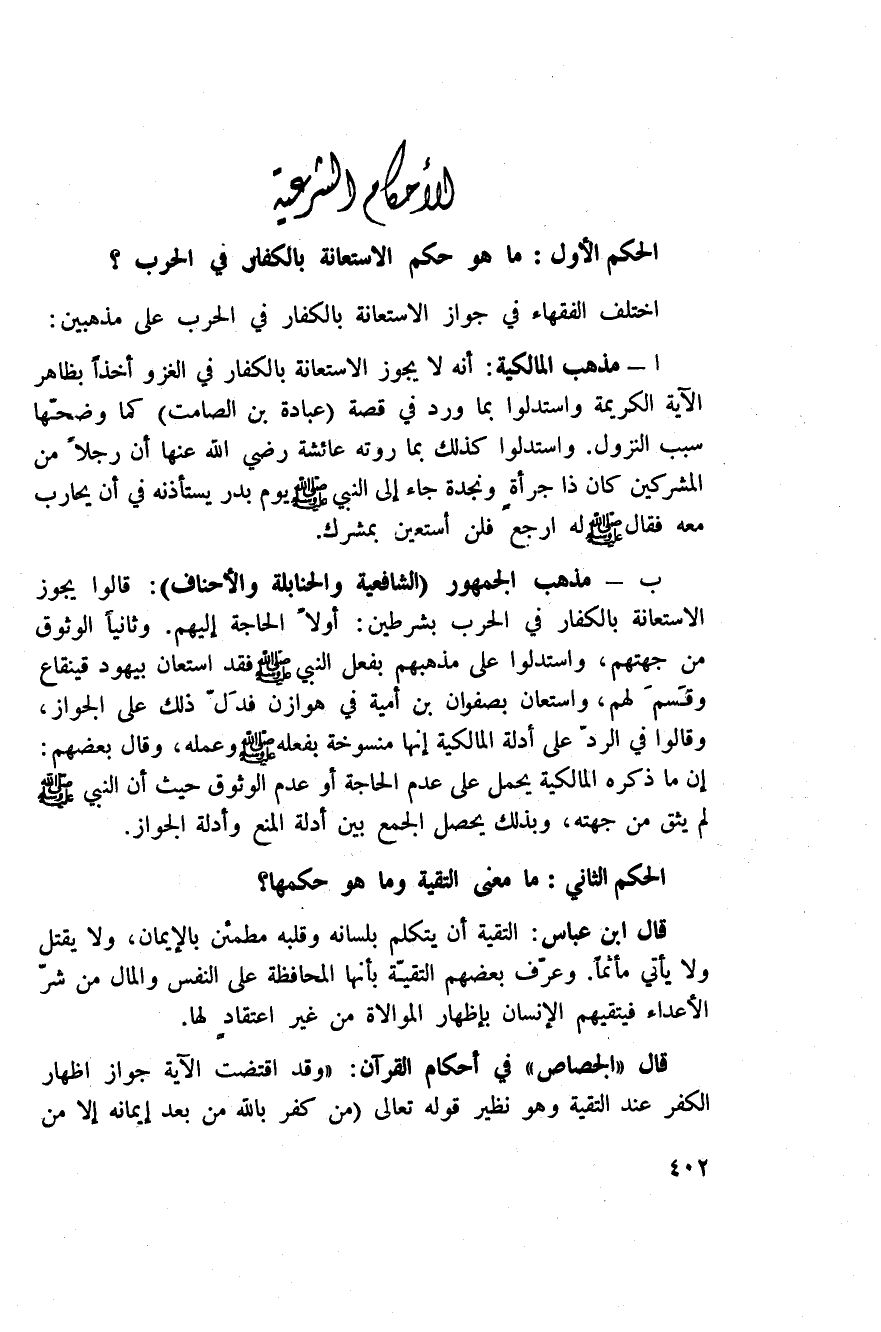 الأحكام الشرعية
الحكم الأول : ما هو حكم الاستعانة بالكفار في الحرب ؟
اختلف الفقهاء في جواز الاستعانة بالكفار في الحرب على مذهبين :
ا – مذهب المالكية : أنه لا يجوز الاستعانة بالكفار في الغزو أخذاً بظاهر
الآية الكريمة واستدلوا بما ورد في قصة (عبادة بن الصامت) كما وضحتها
سبب النزول. واستدلوا كذلك بما روته عائشة رضي الله عنها أن رجلاً من
المشركين كان ذا جرأةٍ ونجدة جاء إلى النبي ﷺ يوم بدر يستأذنه في أن يحارب
معه فقال ﷺ له ارجعْ فلن أستعين بمشرك.
ب – مذهب الجمهور (الشافعية والحنابلة والأحناف) : قالوا يجوز
الاستعانة بالكفار في الحرب بشرطين : أولاً الحاجة إليهم. وثانياً الوثوق
من جهتهم، واستدلوا على مذهبهم بفعل النبي ﷺ فقد استعان بيهود قينقاع
وقَسَمَ لهم، واستعان بصفوان بن أمية في هوازن فدَلّ ذلك على الجواز،
وقالوا في الردّ على أدلة المالكية إنها منسوخة بفعله ﷺ وعمله، وقال بعضهم :
إن ما ذكره المالكية يحمل على عدم الحاجة أو عدم الوثوق حيث أن النبي ﷺ
لم يثق من جهته، وبذلك يحصل الجمع بين أدلة المنع وأدلة الجواز.
الحكم الثاني : ما معنى التقية وما هو حكمها؟
قال ابن عباس : التقية أن يتكلم بلسانه وقلبه مطمئن بالإيمان، ولا يقتل
ولا يأتي مأثماً. وعرّف بعضهم التقيّة بأنها المحافظة على النفس والمال من شرّ
الأعداء فيتقيهم الإنسان بإظهار الموالاة من غير اعتقادٍ لها.
قال «الجصاص» في أحكام القرآن : «وقد اقتضت الآية جواز اظهار
الكفر عند التقية وهو نظير قوله تعالى (من كفر بالله من بعد إيمانه إلا من
٤٠٢